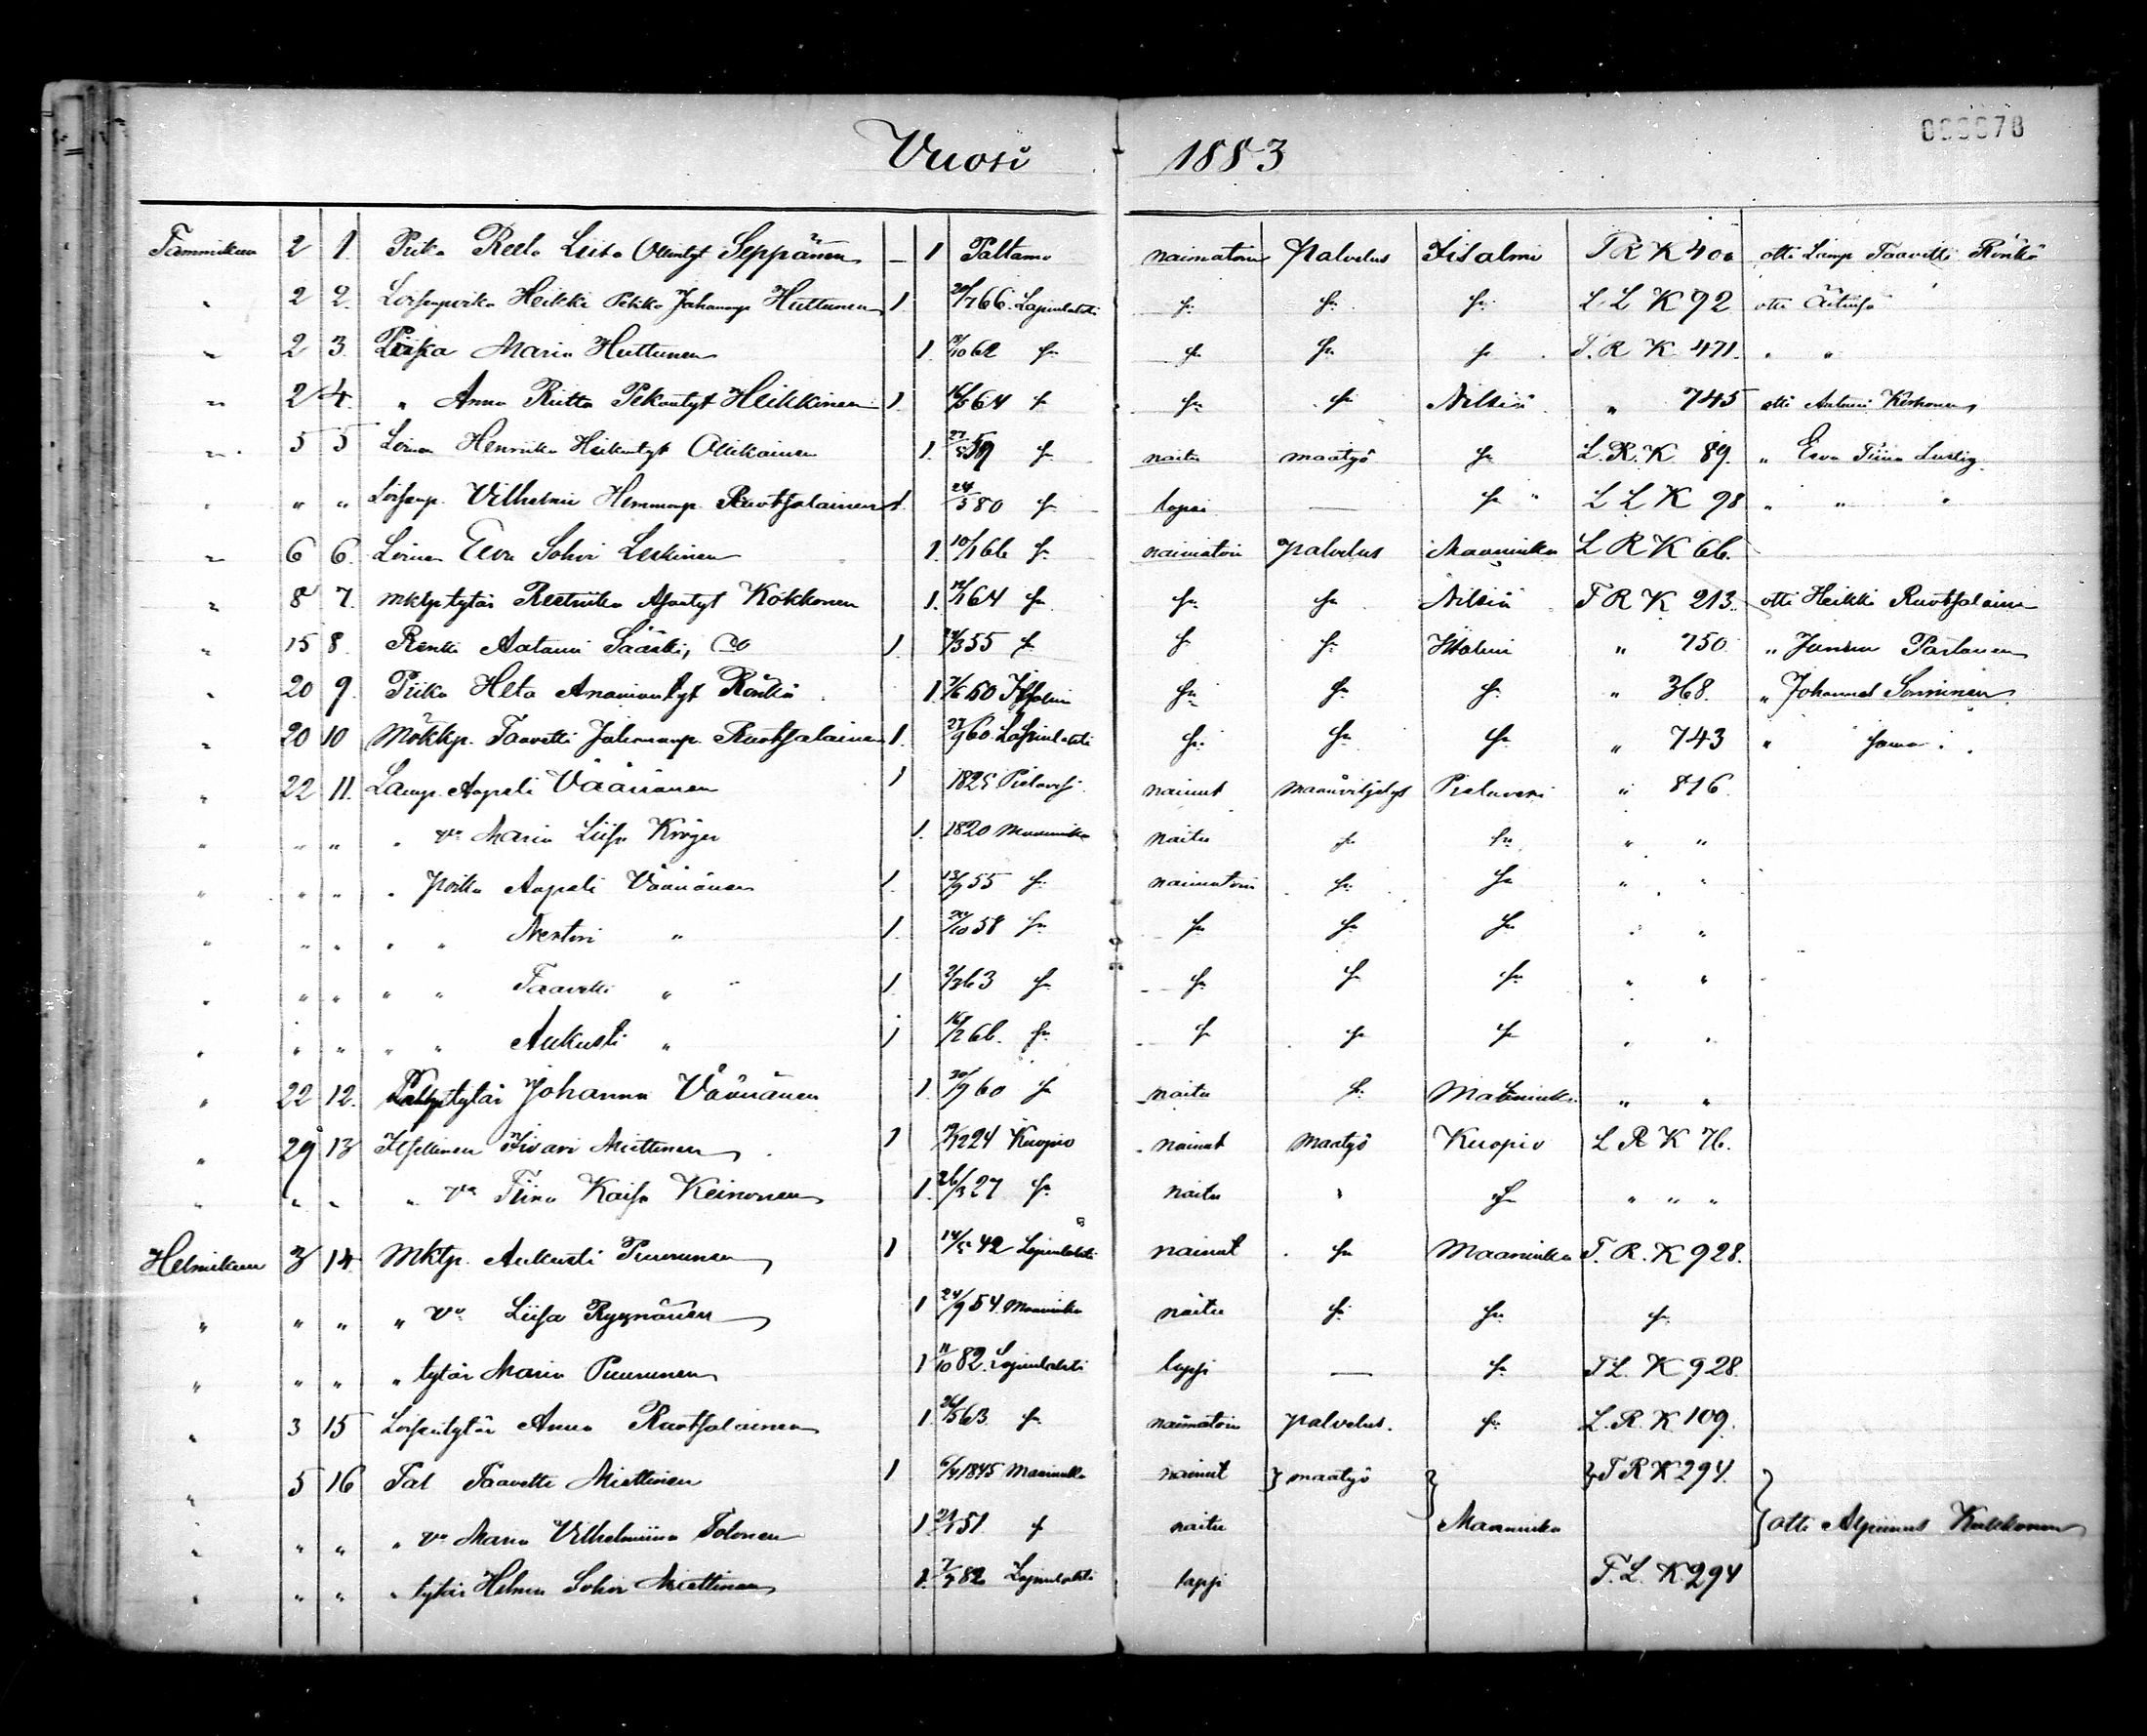 Vuosi 1883
000078
Tammikuu 2 1. Piika Reeta Liisa Ollintyt Seppänen – 1 Paltamo naimatoin palvelus Iisalmi T R K 400 otti Lamp Taavetti Rönkö
" 2 2. Loisenpoika Heikki Pekka Juhananp Huttunen 1. /766. Lapinlahti sn. sn. sn. L L K 92 otti äitinsä
" 2 3. Piika Maria Huttunen 1. /10 62 sn sn sn sn T. R K. 471. " "
" 2 4. " Anna Riitta Pekantyt Heikkinen 1. 16/5 64 sn sn sn Nilsiä " 745 otti Antti Korhonen
" 5 5 Loinen Henriika Heikintyt Ollikainen 1. 27/ 59 sn naitu maatyö sn L. R. K. 89. " Eeva Tiina Lustig
" " " Loisenp. Vilhelmi Hermanp. Ruotsalainen 1. 24/5 80 sn lapsi — sn L L K 98 " " "
" 6 6. Loinen Eeva Sohvi Leskinen 1. 10/1 66 sn. naimatoin palvelus Maaninka L R K 66.
" 8 7. mktptytär Reetriika Kokkonen 1. 12/1 64 sn sn sn Nilsiä T R K 213. otti Heikki Ruotsalainen
" 15 8. Renki Aatami Sääski, 1 /3 55 sn sn sn Iisalmi " 750. " Partanen
" 20 9. Piika Heta Ananiantyt Rönkä 1. /6 60 Iisalmi sn sn sn " 368. " Johannes Sonninen
" 20 10 Mökkp. Taavetti Juhananp. Ruotsalainen 1. 27/9 60. Lapinlahti sn sn sn " 743 " sama
" 22 11. Lamp. Aapeli Väänänen 1 1825 Pielavesi nainut maanviljelys Pielavesi " 816
" " " " vo Maria Liisa Kröger 1. 1820 Maaninka naitu sn sn " "
" " " " poika Aapeli Väänänen 1. 13/9 55 sn naimatoin sn sn " "
" " " " " Nestori " 1. 20/10 58 sn sn sn sn " "
" " " " " Taavetti " 1. 2/3 63 sn sn sn sn " "
" " " " " Aukusti " 1 16/2 66. sn sn sn sn " "
" 22 12. tytär Johanna Väänänen 1. 30/9 60 sn naitu sn Maaninka " "
" 29 13 Itsellinen Iivari Miettinen 1 /12 24 Kuopio nainut maatyö Kuopio L R K 76.
" " " " vo Tiina Kaisa Keinonen 1. 26/3 27 sn naitu " sn " " "
Helmikuu 3 14 Mktp. Aukusti Puurunen 1 14/5 42 Lapinlahti nainut sn Maaninka T. R. K 928.
" " " " vo Liisa Ryynänen 1 24/9 54. Maaninka naitu sn sn sn
" " " " tytär Maria Puurunen 1 11/10 82. Lapinlahti lapsi — sn T L. K 928.
" 3 15 Loisentytär Anna Ruotsalainen 1. 26/5 63 sn naimatoin palvelus. sn L. R. K 109.
" 5 16 Tal Taavetti Miettinen 1 6/4 1845 Maaninka nainut maatyö T R K 294.
" " " " vo Maria Vilhelmiina Tolonen 1 51 sn naitu Maaninka otti Alpiinus Kukkonen
" " " " tytär Helma Sohvi Miettinen 1. 7/9 82 Lapinlahti lapsi T. L. K. 294